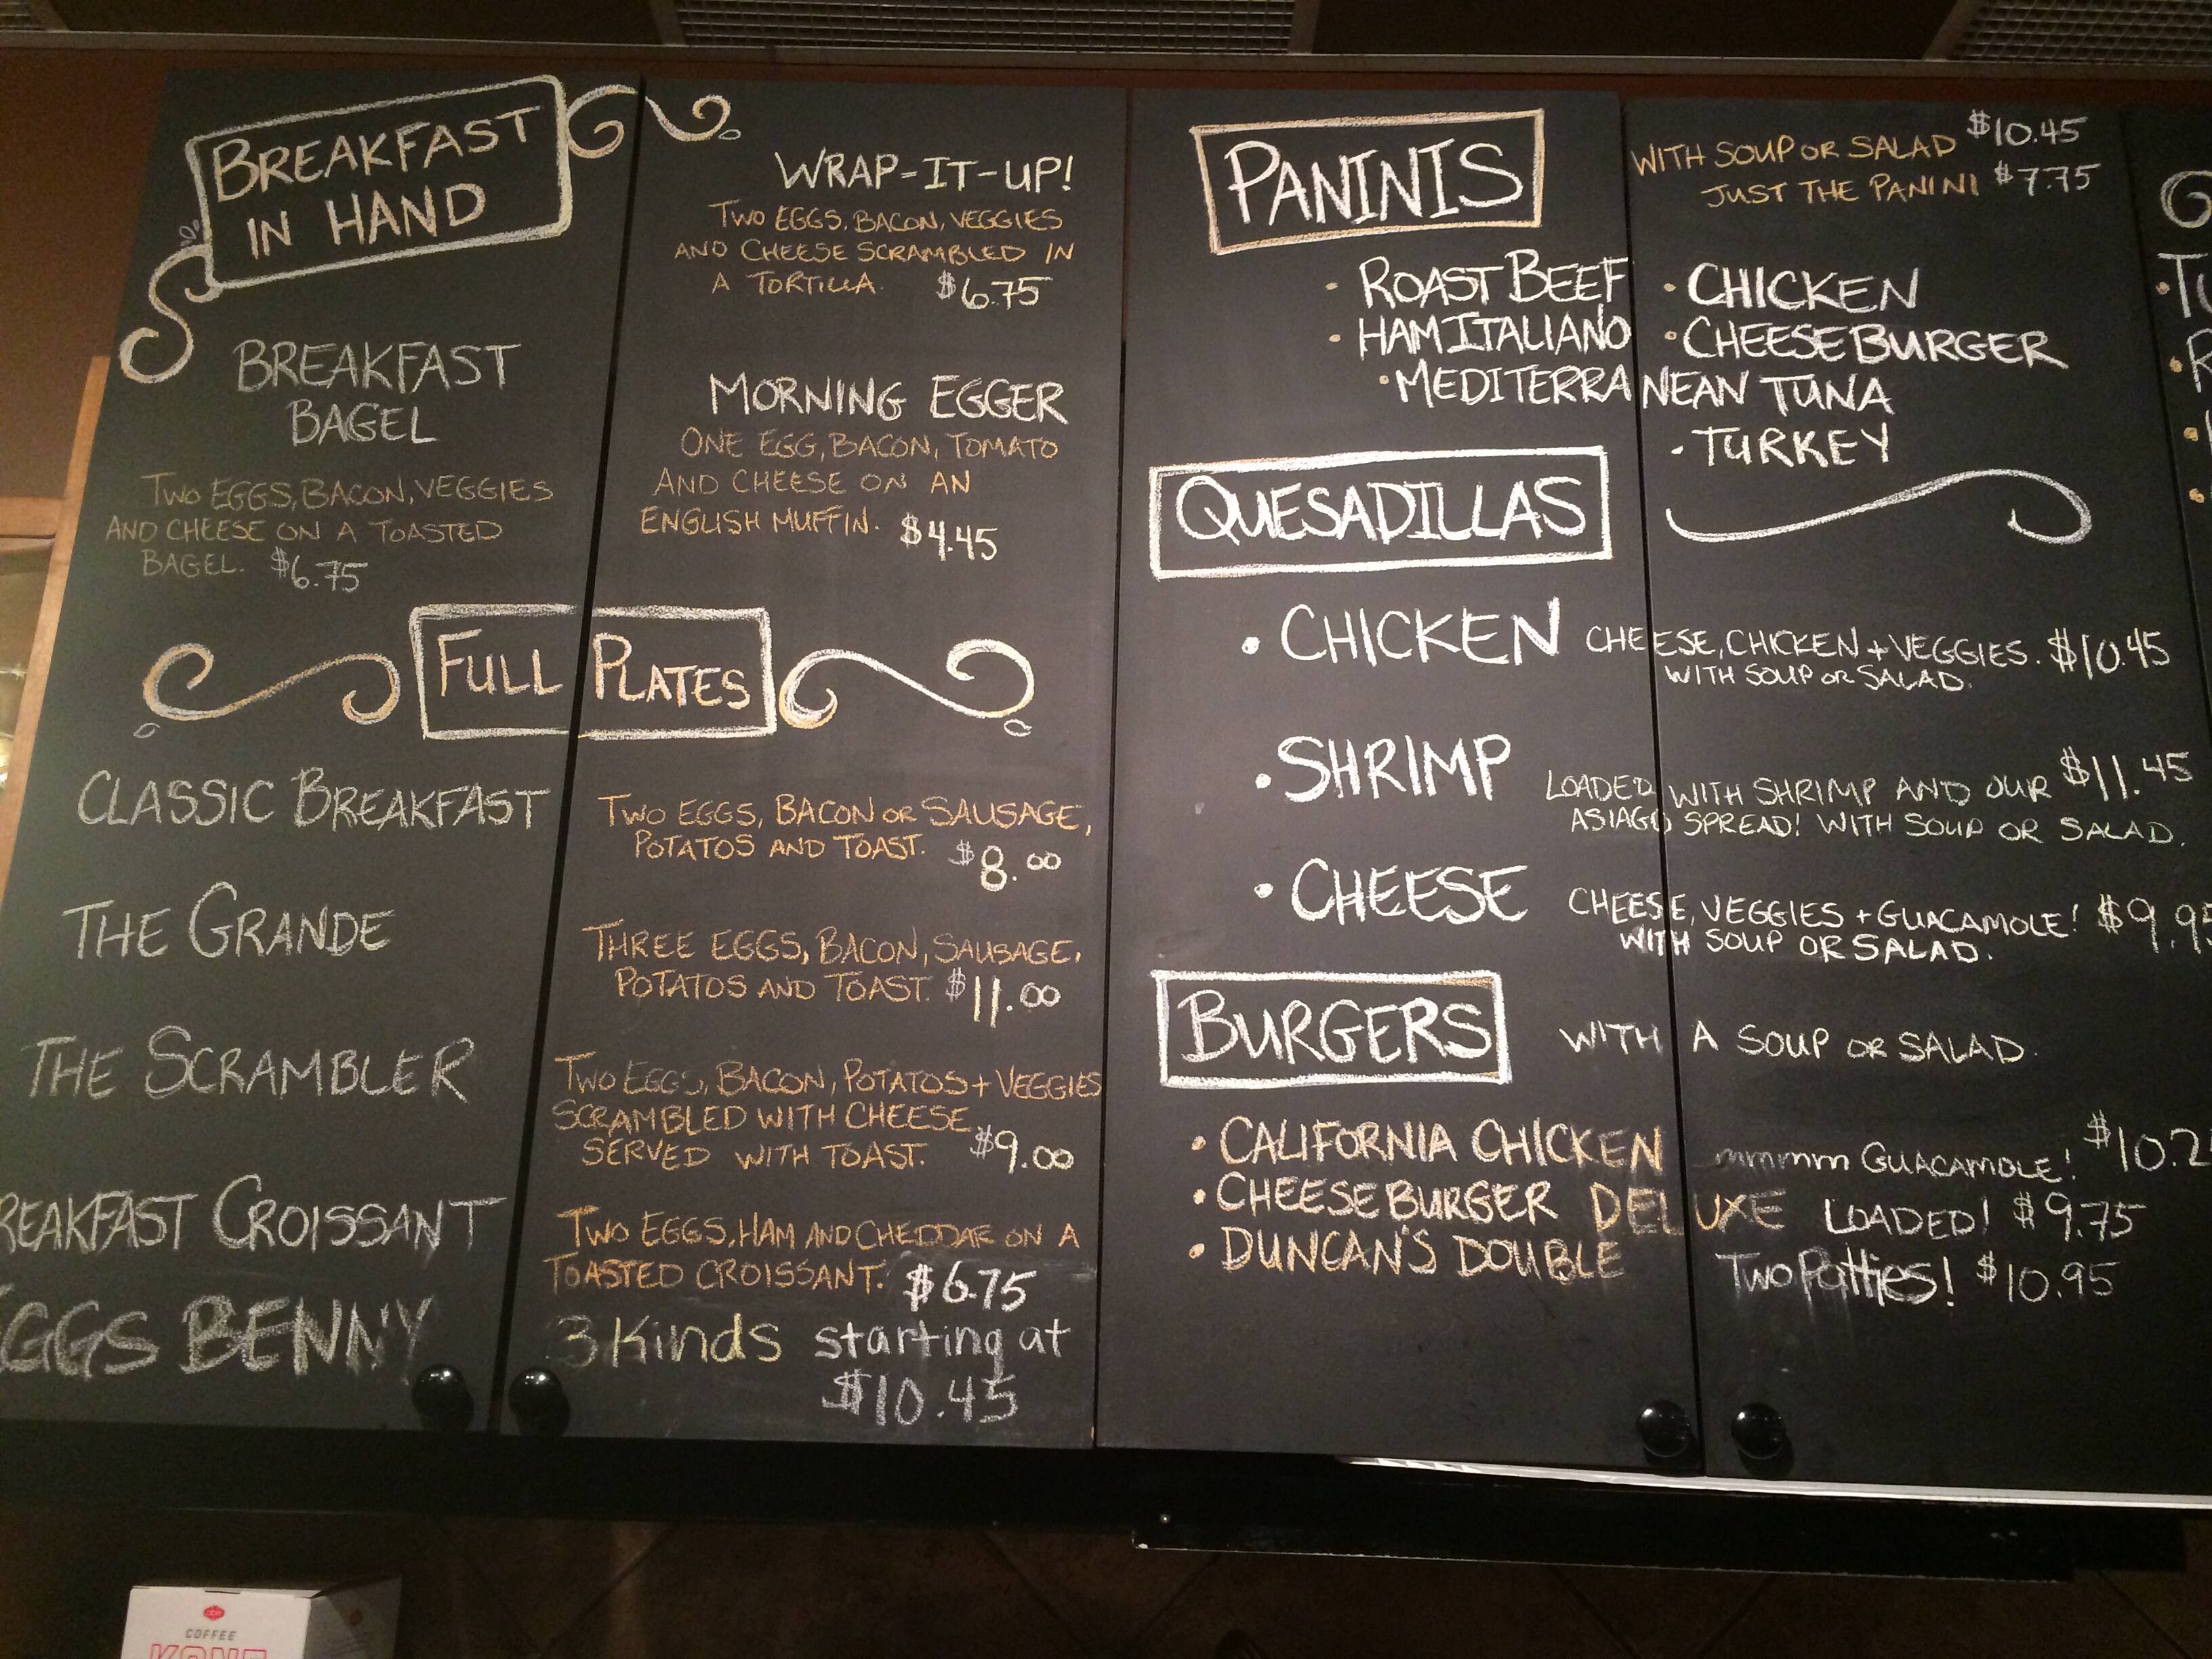 BREAKFAST
IN HAND
BREAKFAST
BAGEL
TWO EGGS, BACON, VEGGIES
AND CHEESE ON A TOASTED
BAGEL. $6.75
WRAP-IT-UP!
TWO EGGS, BACON, VEGGIES
AND CHEESE SCRAMBLED IN
A TORTILLA. $6.75
MORNING EGGER
ONE EGG, BACON, TOMATO
AND CHEESE ON AN
ENGLISH MUFFIN. $4.45
FULL PLATES
CLASSIC BREAKFAST
TWO EGGS, BACON OR SAUSAGE,
POTATOS AND TOAST. $8.00
THE GRANDE
THREE EGGS, BACON, SAUSAGE,
POTATOS AND TOAST. $11.00
THE SCRAMBLER
TWO EGGS, BACON, POTATOS + VEGGIES
SCRAMBLED WITH CHEESE
SERVED WITH TOAST. $9.00
REAKFAST CROISSANT
TWO EGGS, HAM AND CHEDDAR ON A
TOASTED CROISSANT. $6.75
EGGS BENNY
3 Kinds starting at
$10.45
PANINIS
WITH SOUP OR SALAD $10.45
JUST THE PANINI $7.75
• ROAST BEEF • CHICKEN
• HAM ITALIANO • CHEESEBURGER
• MEDITERRANEAN TUNA
• TURKEY
QUESADILLAS
• CHICKEN CHEESE, CHICKEN + VEGGIES. $10.45
WITH SOUP OR SALAD.
• SHRIMP LOADED WITH SHRIMP AND OUR $11.45
ASIAGO SPREAD! WITH SOUP OR SALAD.
• CHEESE CHEESE, VEGGIES + GUACAMOLE! $9.9
WITH SOUP OR SALAD.
BURGERS WITH A SOUP OR SALAD.
• CALIFORNIA CHICKEN mmmmm GUACAMOLE! $10.2
• CHEESEBURGER DELUXE LOADED! $9.75
• DUNCAN'S DOUBLE Two Patties! $10.95
COFFEE
KONE